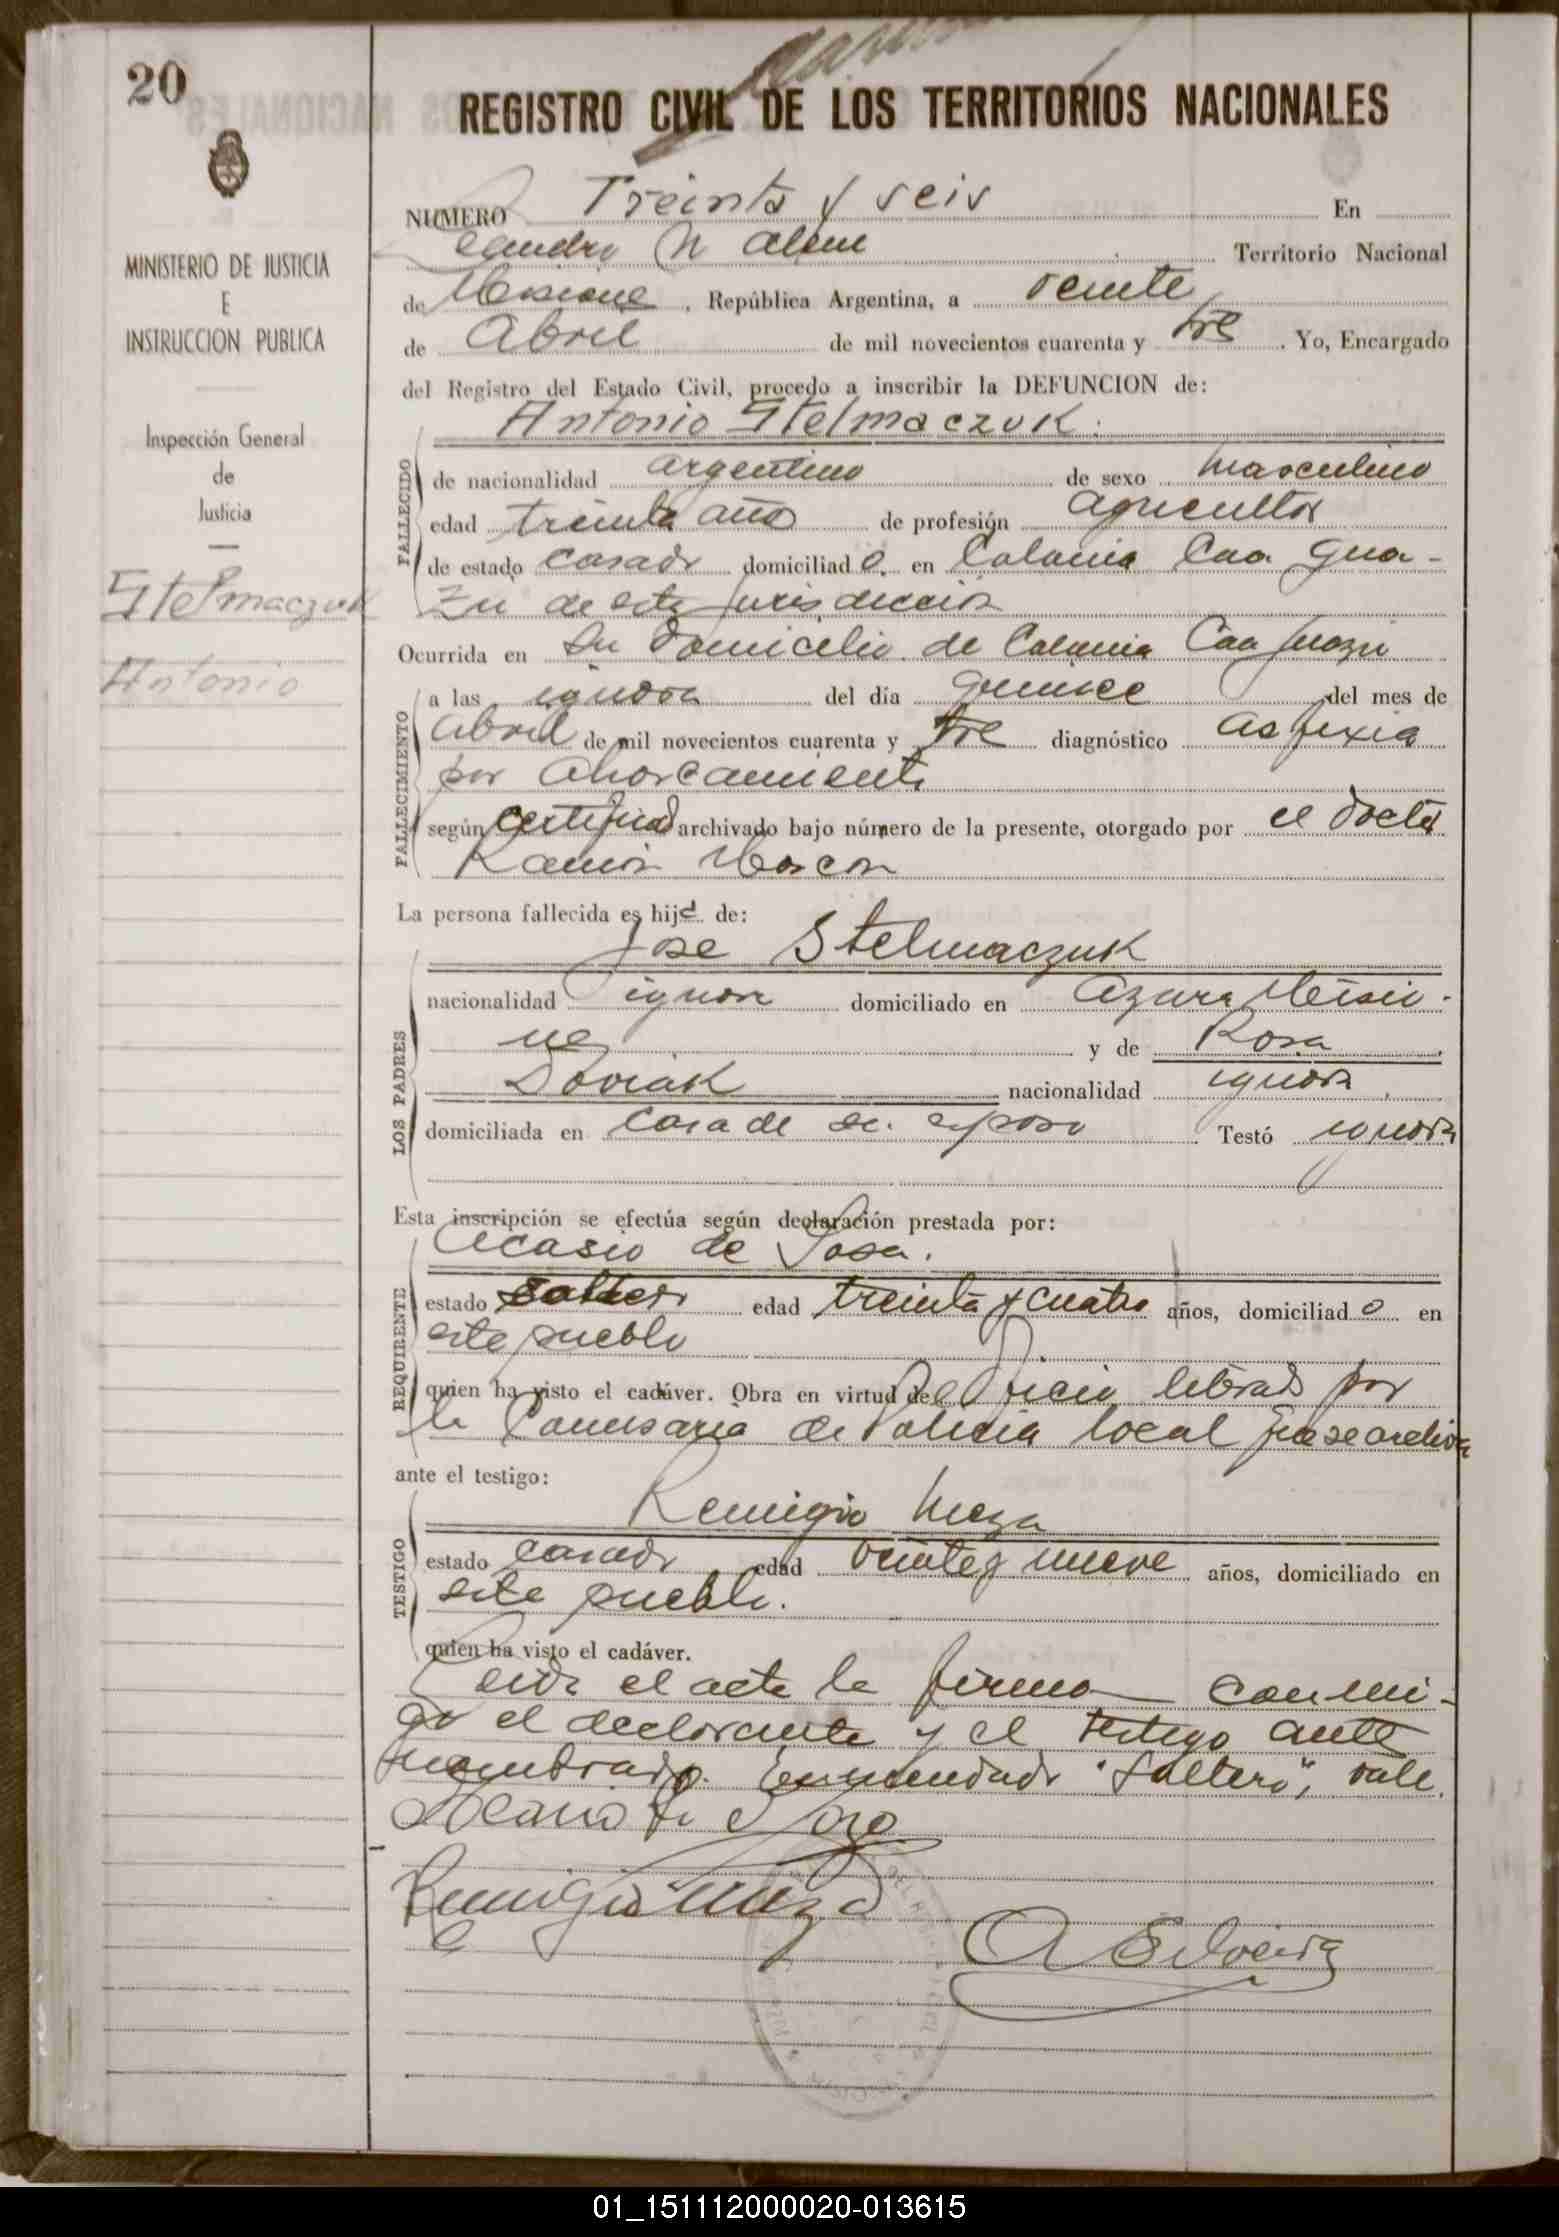 20
REGISTRO CIVIL DE LOS TERRITORIOS NACIONALES
MINISTERIO DE JUSTICIA
E
INSTRUCCION PUBLICA
Inspección General
de
Justicia
Stelmaczuk
Antonio
NUMERO Treinta y seis En
Leandro N Alem Territorio Nacional
de Misiones, República Argentina, a veinte
de Abril de mil novecientos cuarenta y tres. Yo, Encargado
del Registro del Estado Civil, procedo a inscribir la DEFUNCION de:
Antonio Stelmaczuk.
FALLECIDO
de nacionalidad argentino de sexo masculino
edad treinta años de profesión agricultor
de estado casado domiciliado en Colonia Caa Gua-
zu de esta jurisdiccion
Ocurrida en su domicilio de Colonia Caa Guazu
FALLECIMIENTO
a las ignora del día quince del mes de
Abril de mil novecientos cuarenta y tres diagnóstico asfixia
por ahorcamiento
según certificado archivado bajo número de la presente, otorgado por el doctor
Ramón
La persona fallecida es hijo de:
Jose Stelmaczuk
LOS PADRES
nacionalidad ignora domiciliado en Azara Misio-
nes y de Rosa
nacionalidad ignora
domiciliada en casa de su esposo Testó ignora
Esta inscripción se efectúa según declaración prestada por:
Acasio de Sosa.
REQUIRENTE
estado soltero edad treinta y cuatro años, domiciliado en
este pueblo
quien ha visto el cadáver. Obra en virtud del oficio librado por
la Comisaria de Policia local que se archiva
ante el testigo:
Remigio Meza
TESTIGO
estado casado edad veinte y nueve años, domiciliado en
este pueblo.
quien ha visto el cadáver.
Leida el acta la firma conmi-
go el declarante y el testigo ante
nombrado. Enmendado "soltero", vale.
Acasio de Soza
Remigio Meza
A Silveira
01_151112000020-013615